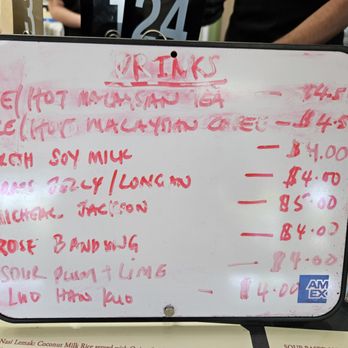 124
DRINKS
E/HOT MALAYSIAN TEA - $4.5
E/HOT MALAYSIAN COFFEE - $4.5
RESH SOY MILK - $4.00
JELLY/LONGAN - $4.00
MICHEAL JACKSON - $5.00
ROSE BANDUNG - $4.00
SOUR PLUM + LIME - $4.00
LUO HAN KUO - $4.00
AM
EX
Nasi Lemak: Coconut Milk Rice